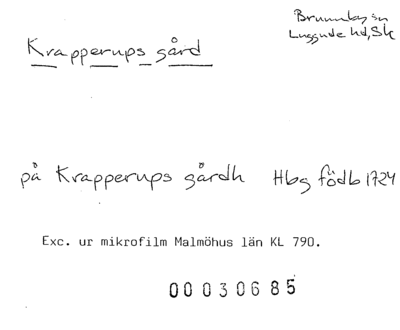 Brunnby sn
Luggude hd, Sk
Krapperups gård
på Krapperups gårdh Hbg födb 1724
Exc. ur mikrofilm Malmöhus län KL 790.
00030685